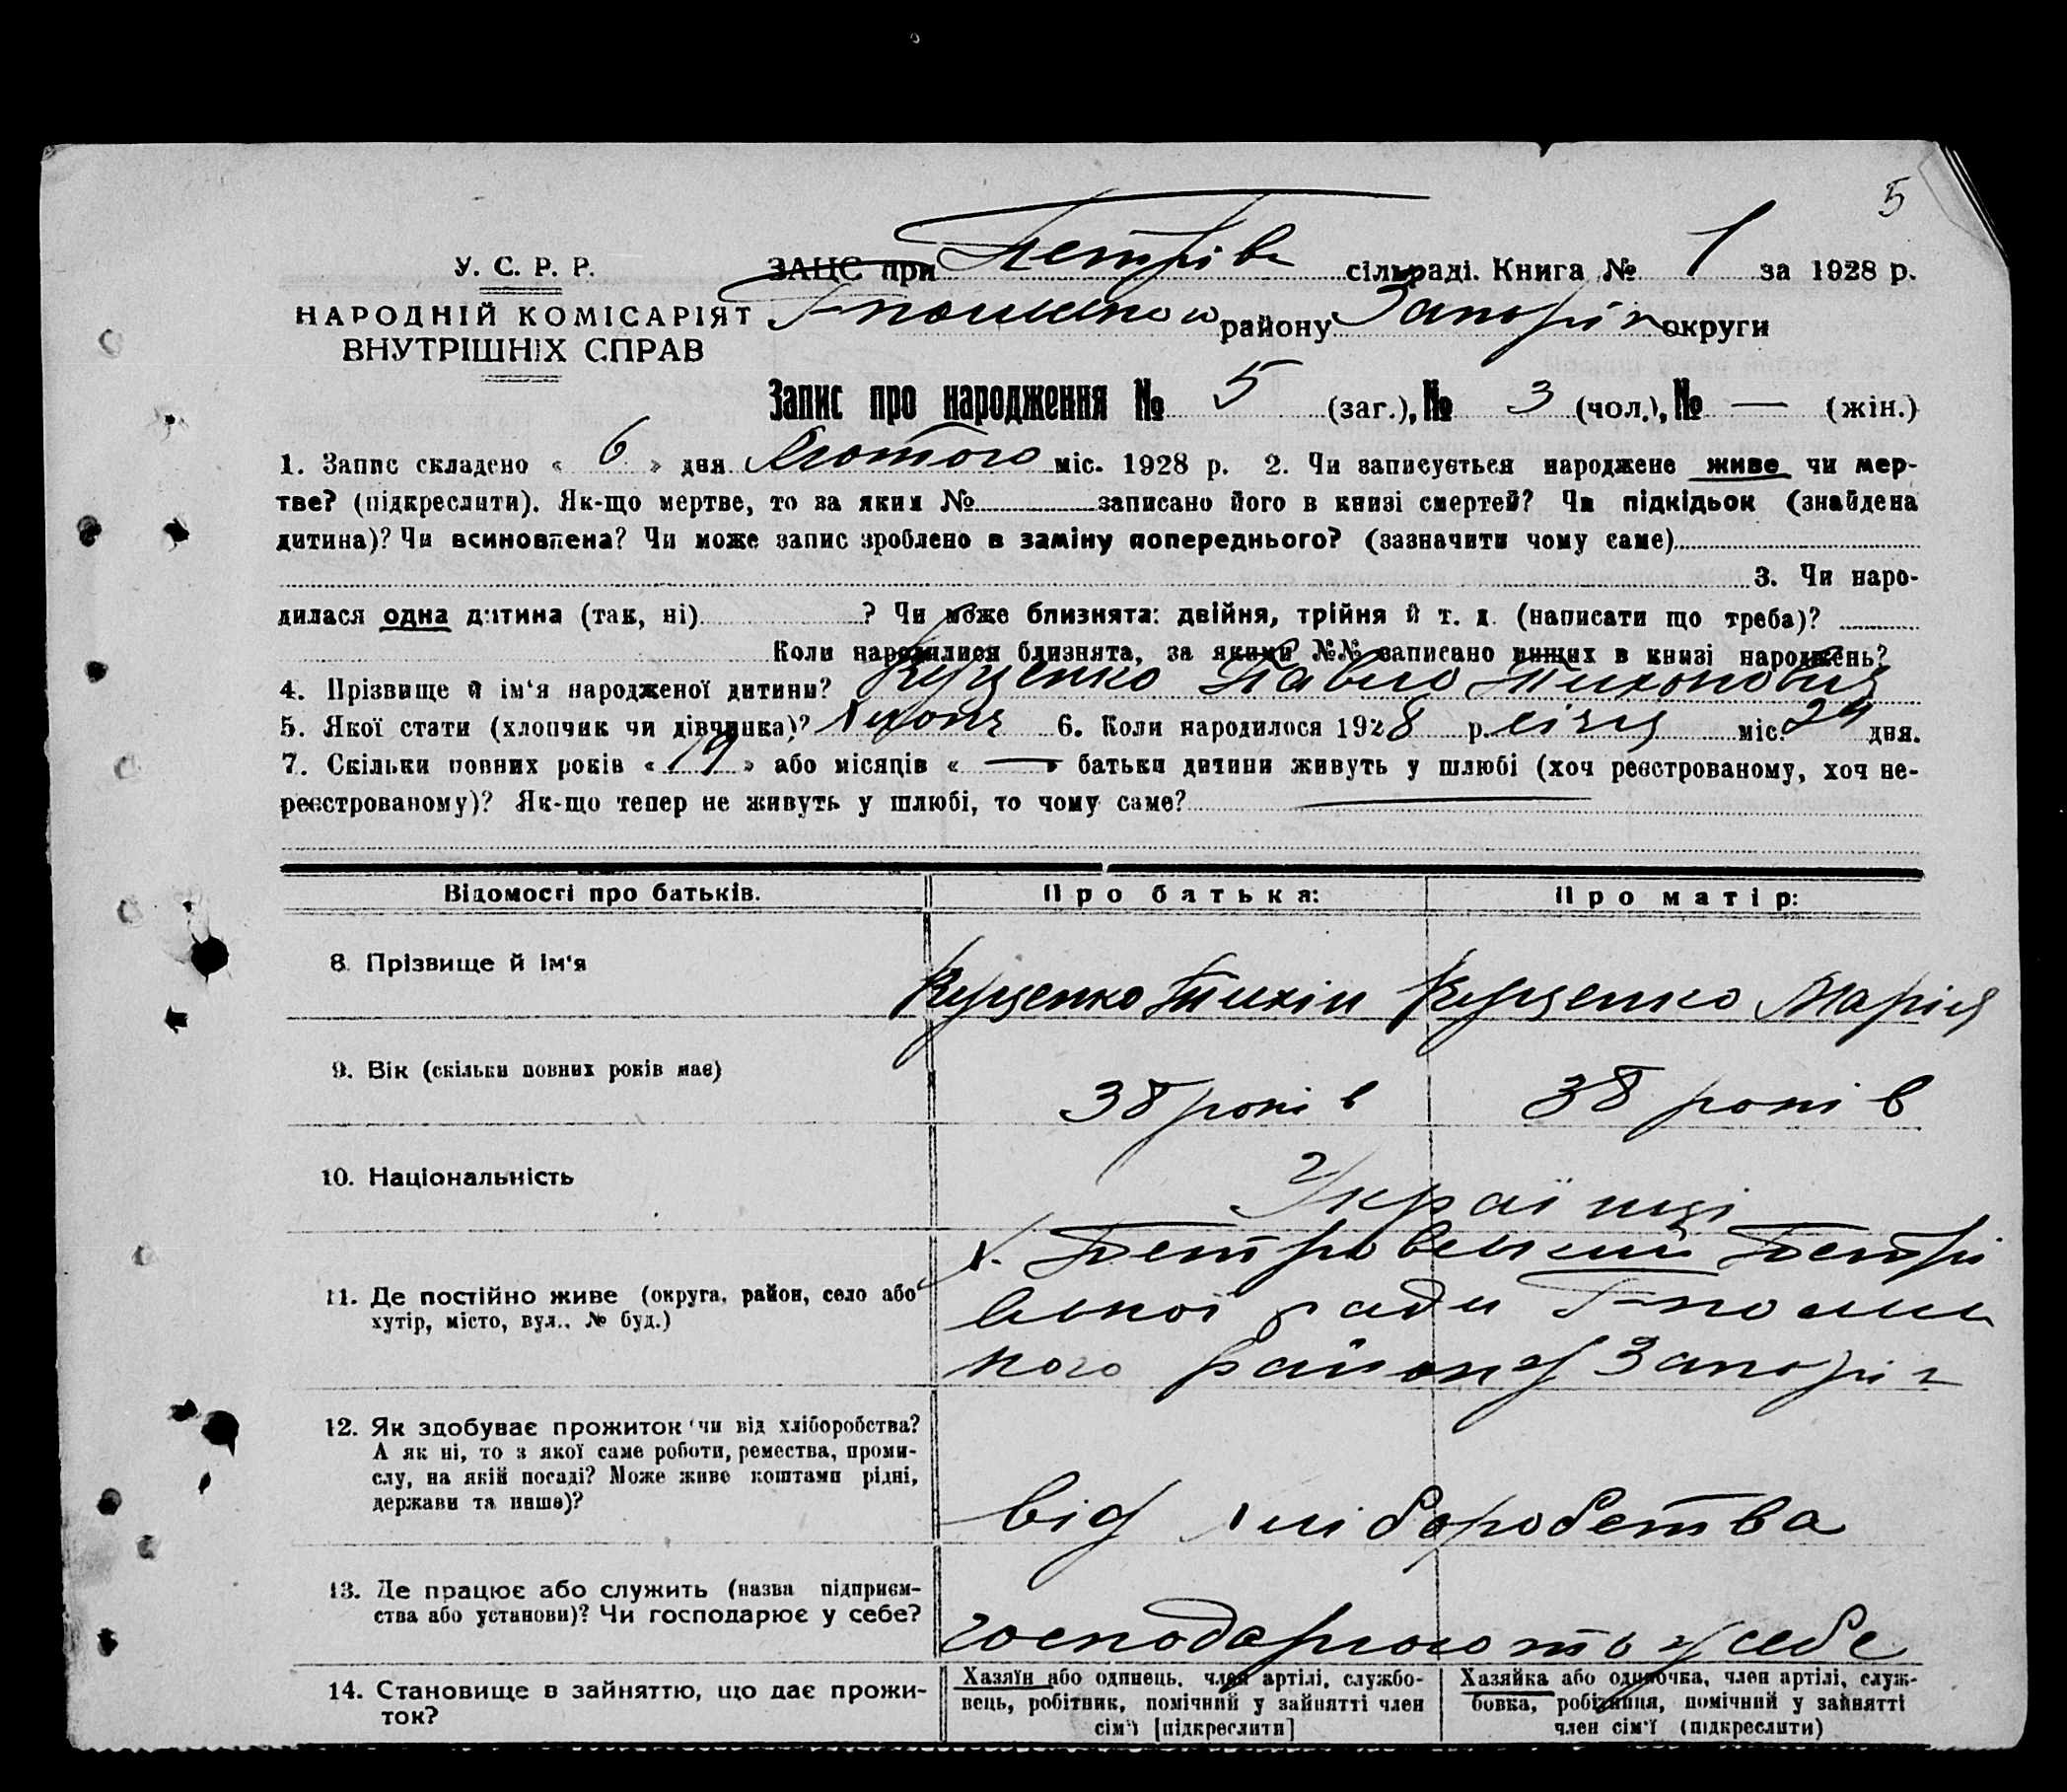 5
У. С. Р. Р.
НАРОДНІЙ КОМІСАРІЯТ
ВНУТРІШНІХ СПРАВ
ЗАЦС при Петрів сільраді. Книга № 1 за 1928 р.
району Запоріз округи
Запис про народження № 5 (заг.), № 3 (чол.), № — (жін.)
1. Запис складено « 6 » дня Лютого міс. 1928 р. 2. Чи записується народжене живе чи мер-
тве? (підкреслити). Як-що мертве, то за яким № записано його в книзі смертей? Чи підкідьок (знайдена
дитина)? Чи всиновлена? Чи може запис зроблено в заміну попереднього? (зазначити чому саме)
3. Чи наро-
дилася одна дитина (так, ні) ? Чи може близнята: двійня, трійня й т. д. (написати що треба)?
Коли народилися близнята, за якими №№ записано инших в книзі народжень?
4. Прізвище й ім'я народженої дитини? Куценко Павло Тихонович
5. Якої стати (хлопчик чи дівчинка)? Хлопч 6. Коли народилося 1928 р. січня міс. 24 дня.
7. Скільки повних років « 19 » або місяців « — » батьки дитини живуть у шлюбі (хоч реєстрованому, хоч не-
реєстрованому)? Як-що тепер не живуть у шлюбі, то чому саме? —
Відомості про батьків. Про батька: Про матір:
8. Прізвище й ім'я Куценко Тихін Куценко Марія
9. Вік (скільки повних років має) 38 років 38 років
10. Національність Українці
х. Петровський Петрі
11. Де постійно живе (округа, район, село або
хутір, місто, вул., № буд.) вської ради
кого району Запоріз
12. Як здобуває прожиток (чи від хліборобства?
А як ні, то з якої саме роботи, ремества, проми-
слу, на якій посаді? Може живе коштами рідні,
держави та инше)? від хліборобства
13. Де працює або служить (назва підприєм-
ства або установи)? Чи господарює у себе? господарюють у себе
14. Становище в зайняттю, що дає прожи-
ток?
Хазяїн або одинець, член артілі, службо-
вець, робітник, помічний у зайнятті член
сім'ї [підкреслити]
Хазяйка або одиночка, член артілі, служ-
бовка, робітниця, помічний у зайнятті
член сім'ї (підкреслити)